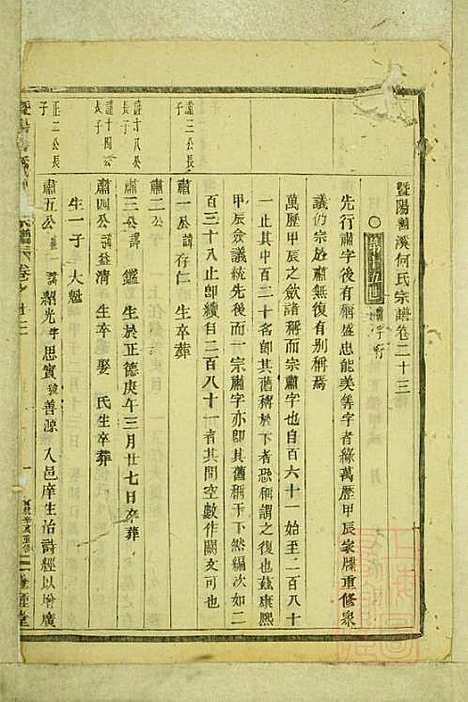 暨陽 溪何氏宗譜卷二十三
肅字行
先行肅字後有稱盛忠能美等字者緣萬歷甲辰家牒重修衆
議仍宗故肅無復有別稱焉
萬歷甲辰之斂諸稱而宗肅字也自百六十一始至二百八十
一止其中百二十名即其舊稱於下者恐稱謂之復也茲康熙
甲辰僉議統先後而一宗肅字亦即其舊稱于下然編次如二
百三十八止即續自二百八十一者其間空數作闕文可也
謹三公長子
肅一公諱存仁 生卒葬
肅二公
謹十八公長子
肅三公諱 鑑 生於正德庚午三月廿七日卒葬
謹十四公長子
肅四公諱益清 生卒 娶 氏生卒葬
生一子 大魁
謹二公長子
肅五公 諱紹光字思寅號善源 入邑庠生治詩經以增廣